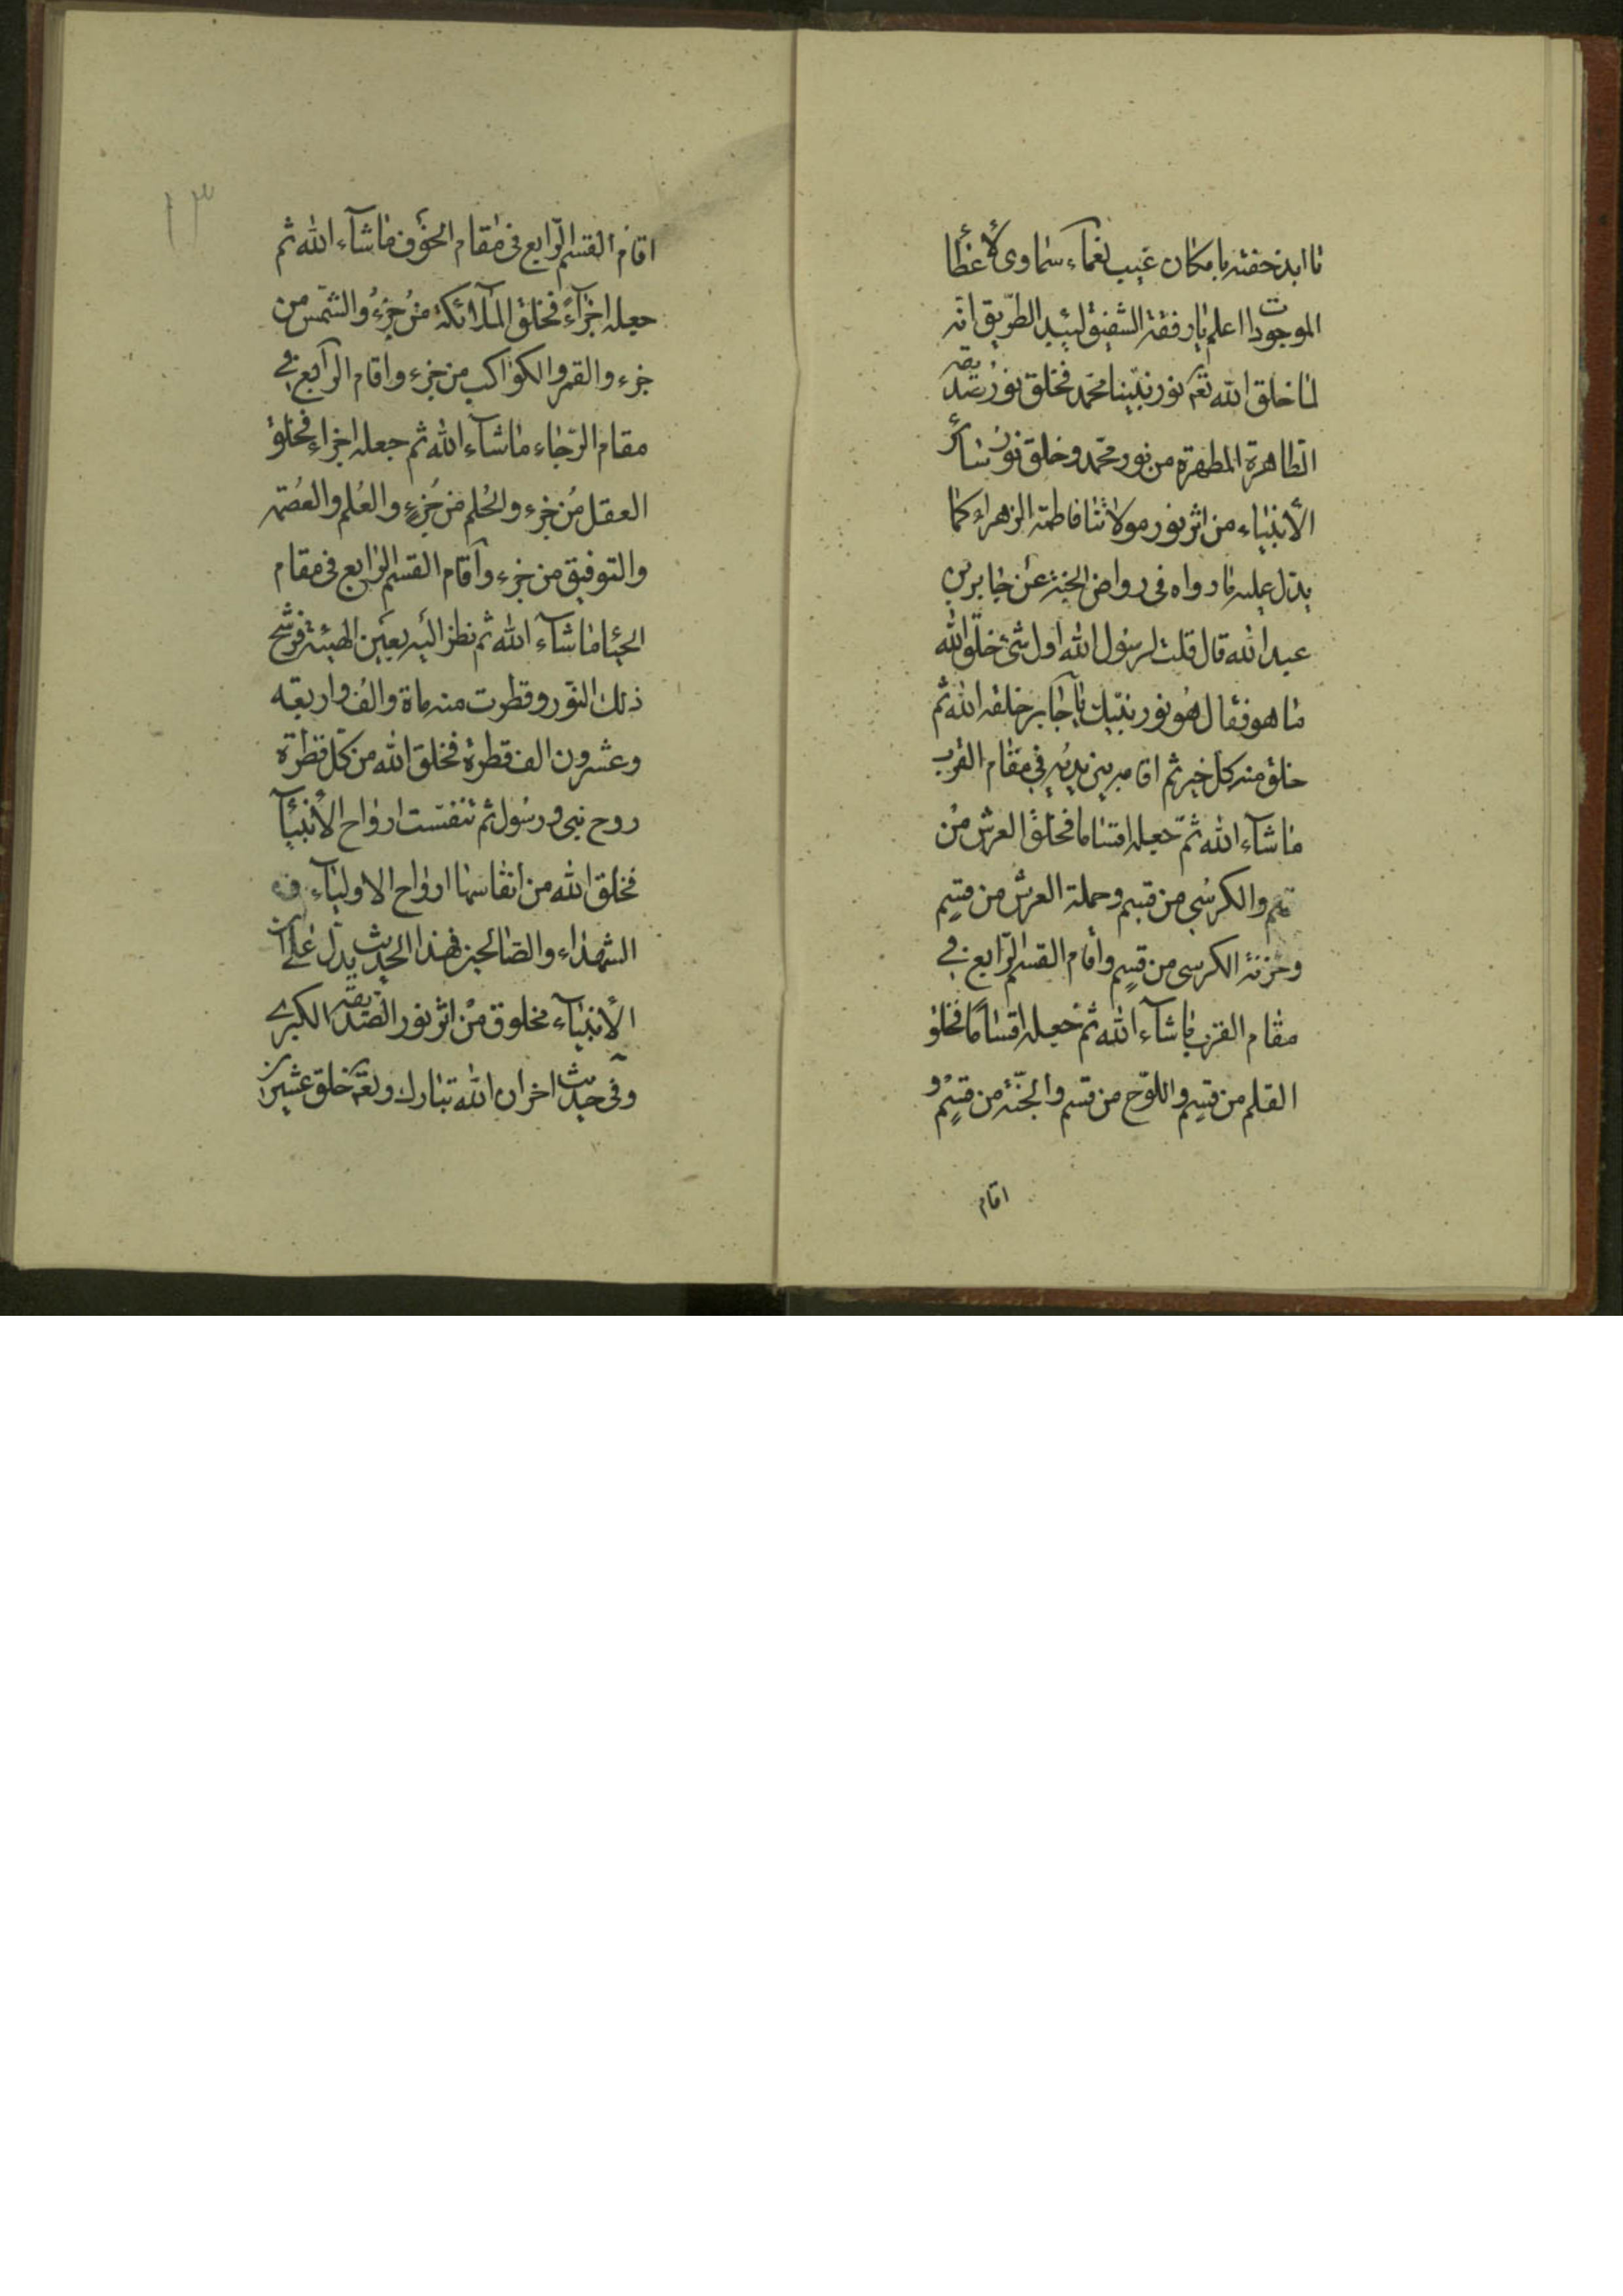 الموجودات اعلم يا رفقة الشفيق لبيد الطريق انه
لما خلق الله تعم نور نبينا محمد فخلق نور صديقه
الطاهرة المطهرة من نور محمد و خلق نور سائر
الأنبياء من اثر نور مولاتنا فاطمة الزهراء كما
يدل عليه ما رواه في رياض الجنة عن جابر بن
عبد الله قال قلت لرسول الله اول شئ خلق الله
ما هو فقال هو نور نبيك يا جابر خلقه الله ثم
خلق منه كل خير ثم اقامه بين يديه في مقام القرب
ما شآء الله ثم جعله اقساما فخلق العرش من
قسم والكرسي من قسم وحملة العرش من قسم
وخزنة الكرسي من قسم وأقام القسم الرابع في
مقام القرب ما شآء الله ثم جعله اقساما فخلق
القلم من قسم واللوح من قسم والجنة من قسم و
اقام
١٣
اقام القسم الرابع في مقام الخوف ما شآء الله ثم
جعله اجزآء فخلق الملآئكة من جزء والشمس من
جزء والقمر والكواكب من جزء واقام الرابع في
مقام الرجاء ما شآء الله ثم جعله اجزاء فخلق
العقل من جزء والحلم من جزء والعلم والعصمة
والتوفيق من جزء وأقام القسم الرابع في مقام
الحيا ما شآء الله ثم نظر اليه بعين الهيبة فرشح
ذلك النور وقطرت منه ماة والف واربعه
وعشرون الف قطرة فخلق الله من كل قطرة
روح نبي و رسول ثم تنفست ارواح الأنبيآ
فخلق الله من انفاسها ارواح الاوليآء و
الشهداء والصالحين فهذا الحديث يدل على ان
الأنبيآء مخلوق من اثر نور الصديقة الكبرى
وفي حديث اخر ان الله تبارك وتعم خلق عشرين